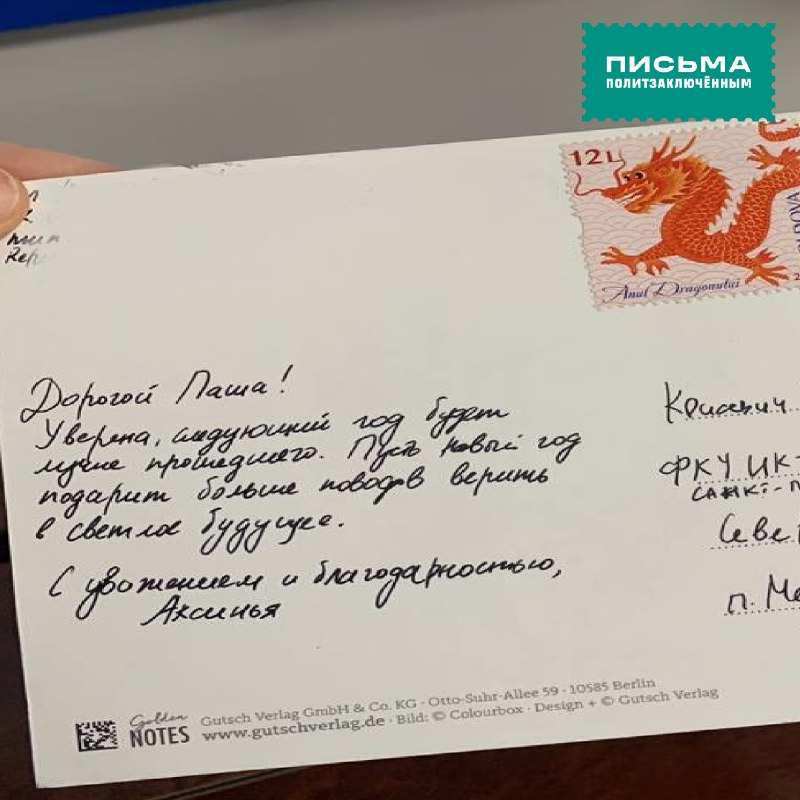 ПИСЬМА
ПОЛИТЗАКЛЮЧЁННЫМ
12L
Anul Dragonului
Дорогой Паша!
Уверена, следующий год будет
лучше прошедшего. Пусть новый год
подарит больше поводов верить
в светлое будущее.
С уважением и благодарностью,
Аксинья
ФКУ ИК-
САНКТ-П
Севе
п. Ме
Golden
NOTES
Gutsch Verlag GmbH & Co. KG · Otto-Suhr-Allee 59 · 10585 Berlin
www.gutschverlag.de · Bild: © Colourbox · Design + © Gutsch Verlag